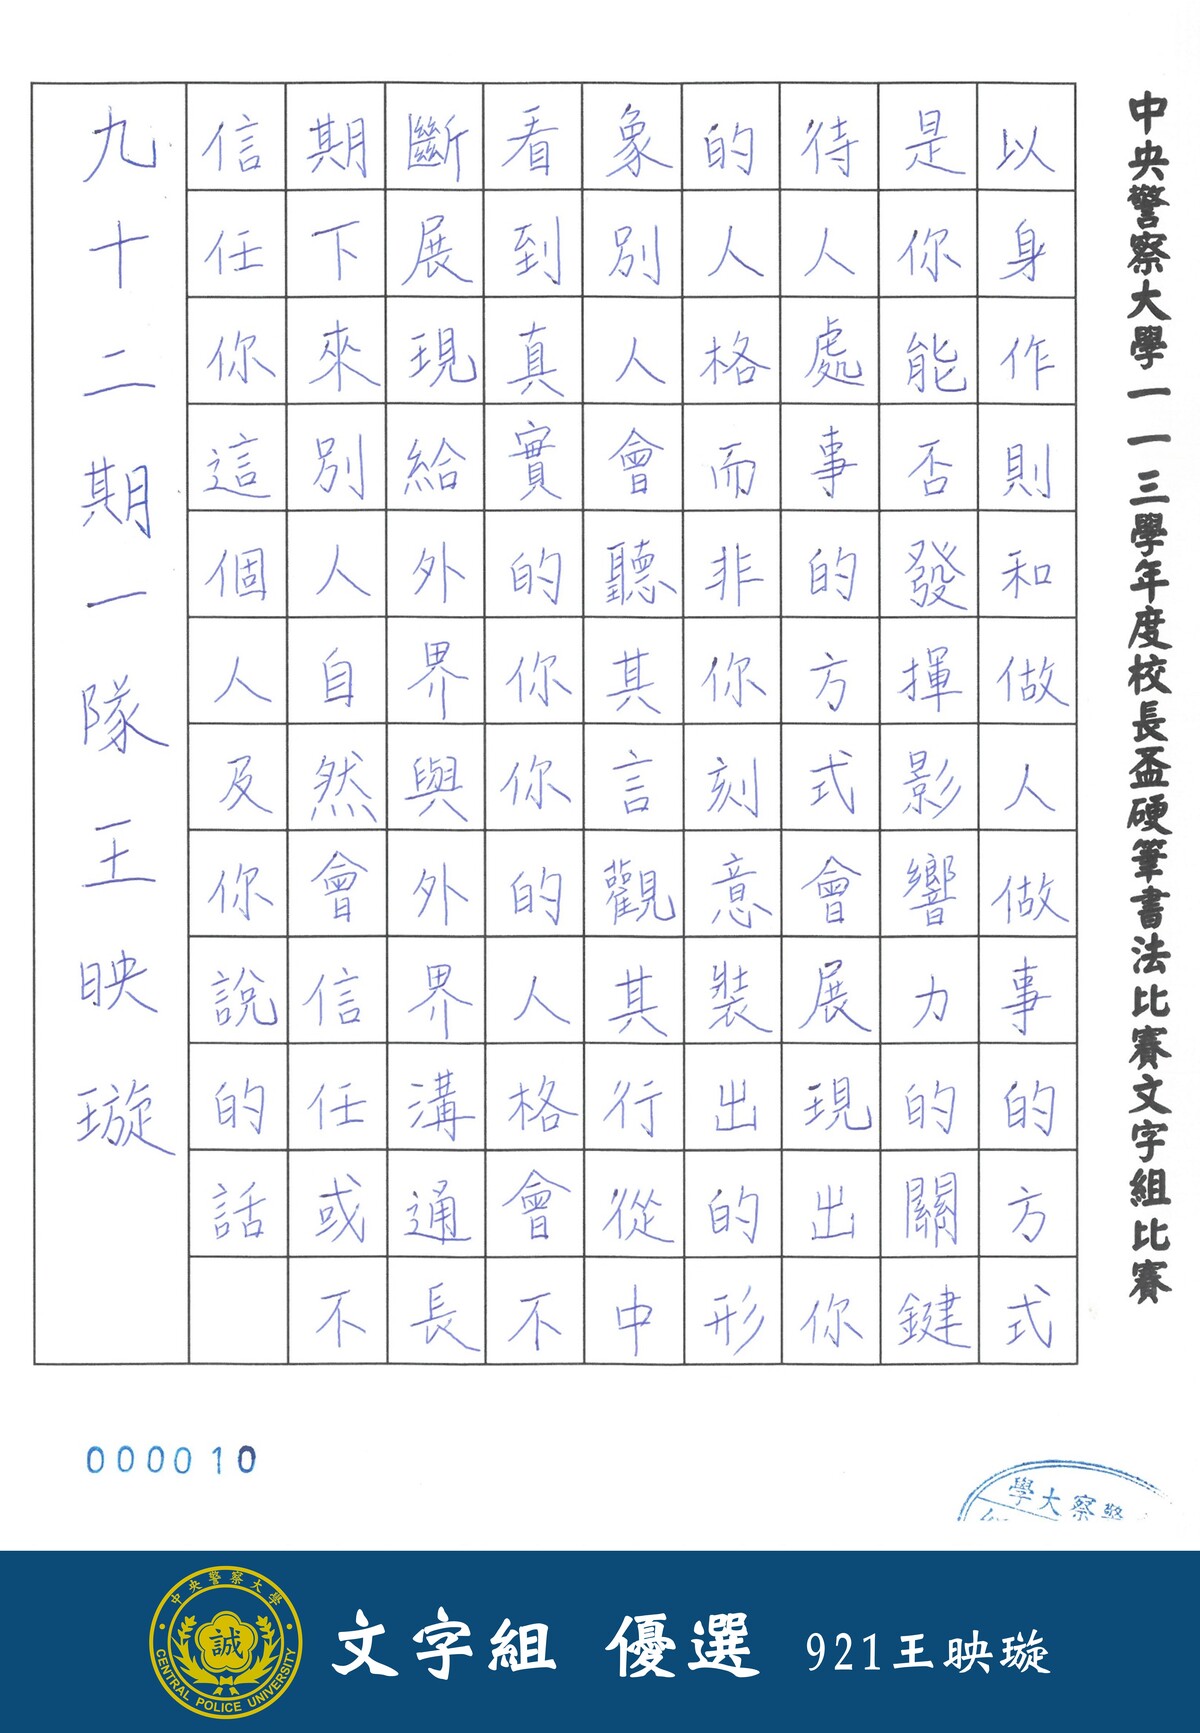 中央警察大學一一三學年度校長盃硬筆書法比賽文字組比賽
以身作則和做人做事的方式
是你能否發揮影響力的關鍵
待人處事的方式會展現出你
的人格而非你刻意裝出的形
象別人會聽其言觀其行從中
看到真實的你你的人格會不
斷展現給外界與外界溝通長
期下來別人自然會信任或不
信任你這個人及你說的話
九十二期一隊王映璇
000010
警察大學
中央警察大學
誠
CENTRAL POLICE UNIVERSITY
文字組 優選 921王映璇